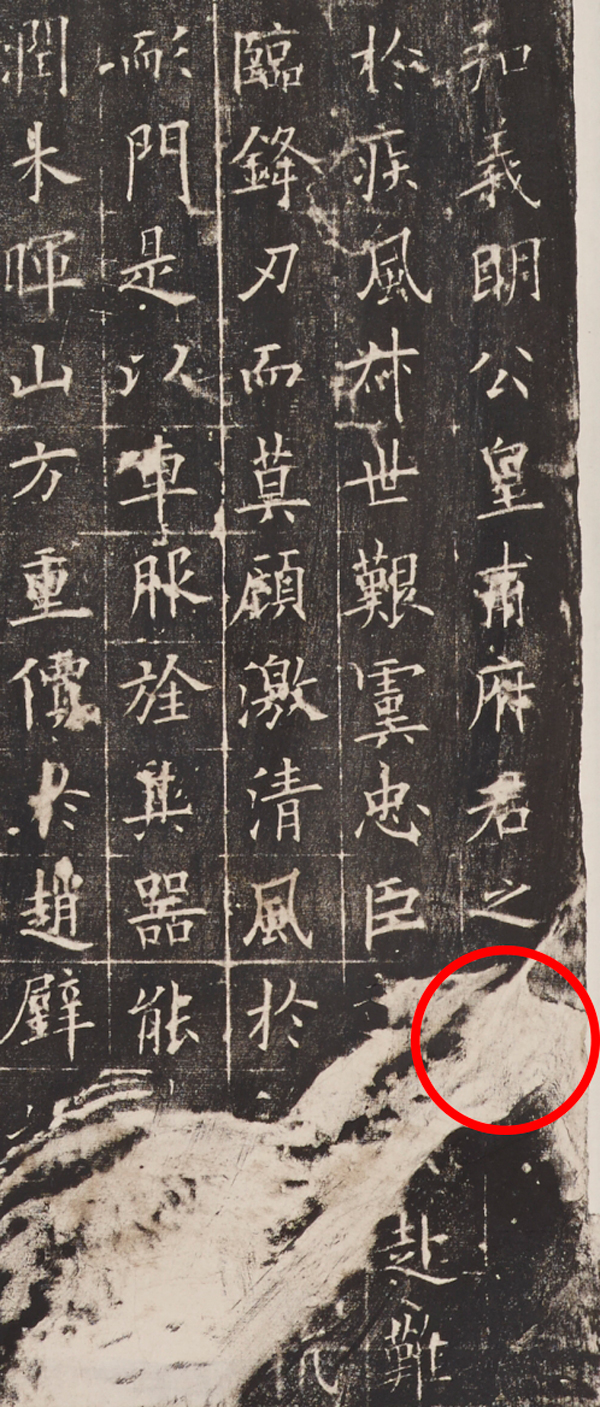 弘義明公皇甫府君之
於疾風叔世艱虞忠臣赴難
臨鋒刃而莫顧激清風於
耏門是以車服旌其器能
潤木暉山方重價於趙璧